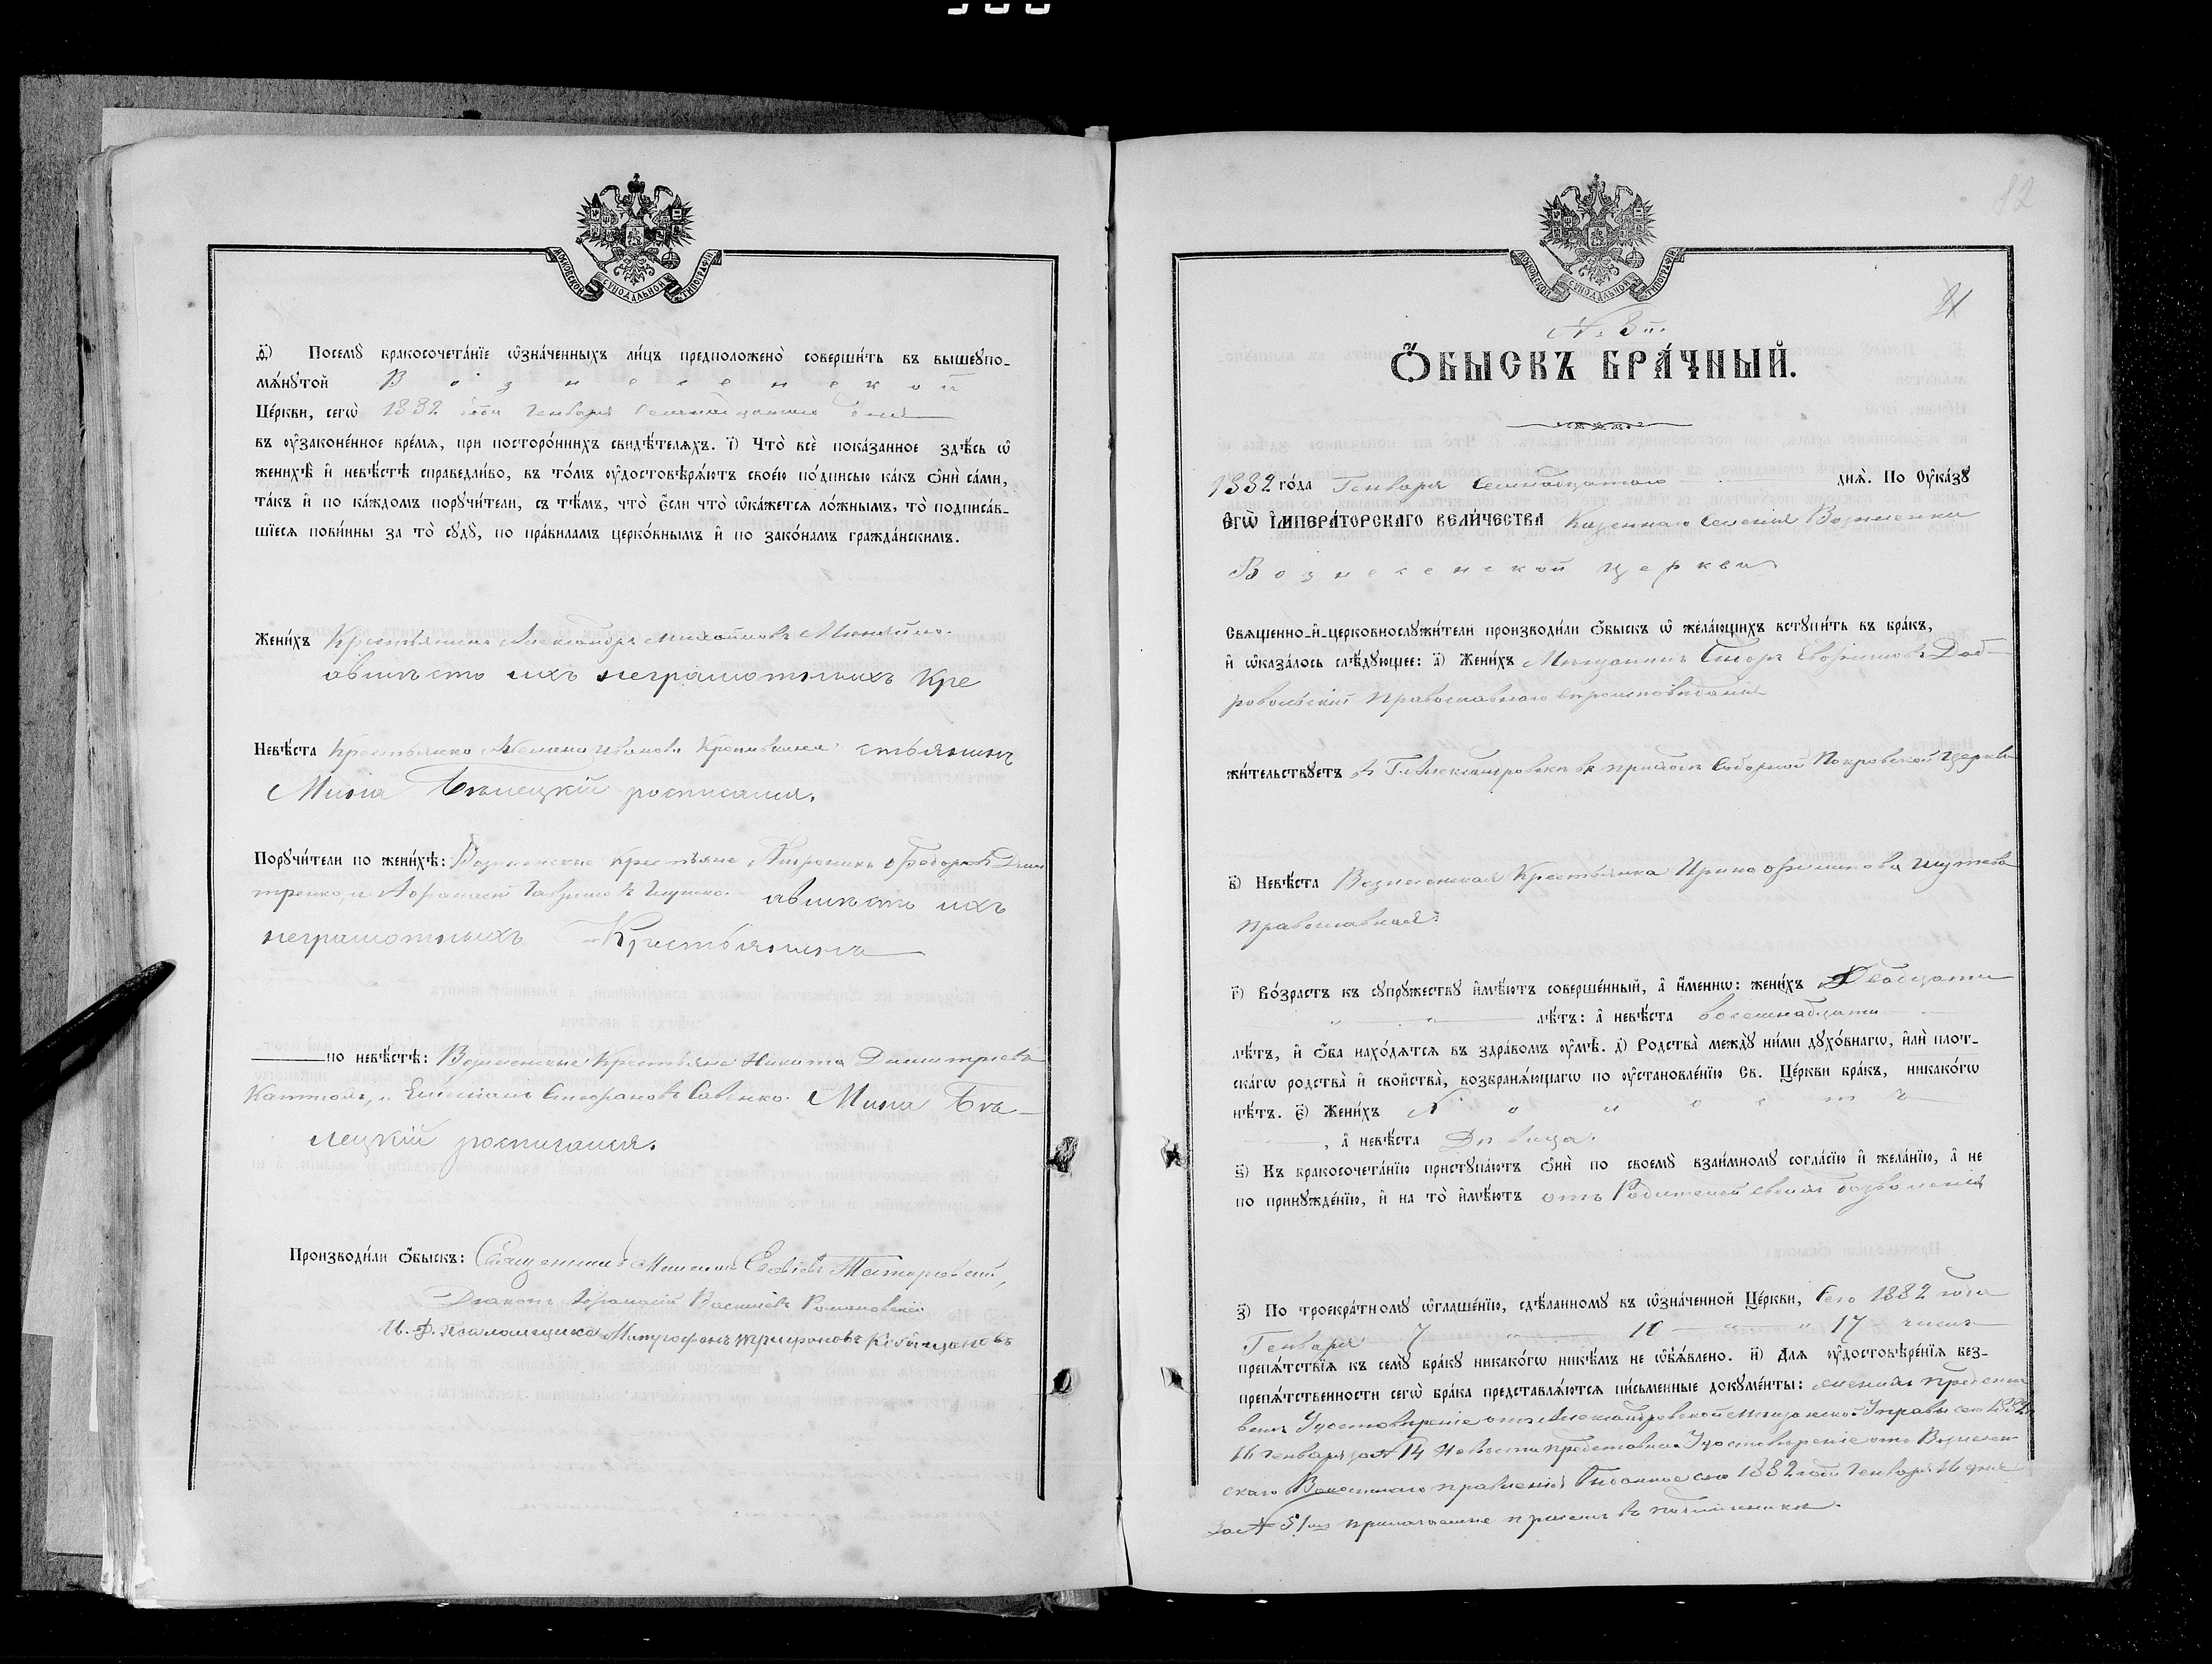 МОСКОВСКОЙ СѴНОДАЛЬНОЙ ТИПОГРАФІИ
ѳ҃) Посемꙋ бракосочета́нїе ѡ҆зна́ченныхъ ли́цъ предположено̀ соверши́ть въ вышеꙋпо-
мѧ́нꙋтой Вознесенской
Це́ркви, сегѡ̀ 1882 года Генваря семнадцатаго дня
въ ᲂу҆законе́нное вре́мѧ, при посторо́ннихъ свидѣ́телѧхъ. і҃) Что̀ всѐ пока́занное здѣ́сь ѡ҆
женихѣ̀ и҆ невѣ́стѣ справедли́во, въ то́мъ ᲂу҆достовѣрѧ́ютъ свое́ю по́дписью ка́къ ѻ҆нѝ са́ми,
та́къ и҆ по ка́ждомъ порꙋчи́тели, съ тѣ́мъ, что̀ є҆́сли что̀ ѡ҆ка́жетсѧ ло́жнымъ, то̀ подписа́в-
шїесѧ пови́нны за то̀ сꙋдꙋ̀, по пра́виламъ церко́внымъ и҆ по зако́намъ гражда́нскимъ.
Жени́хъ Крестьянинъ Александръ Михайловъ
авмѣсто ихъ неграмотныхъ Кре
Невѣ́ста Крестьянка Иванова стьянинъ
Мина Бѣлецкій росписался.
Порꙋчи́тели по женихѣ̀: Вознесенские Крестьяне Ѳедоровъ Дми
тренко, и Афанасій Гавриловъ авмѣсто ихъ
неграмотныхъ Крестьянинъ
по невѣ́стѣ: Вознесенские Крестьяне Никита Димитріевъ
и Стефановъ Савенко. Мина Бѣ-
лецкій росписался.
Производи́ли ѻ҆́быскъ: Священникъ
Діаконъ Афанасій Васильевъ Романовскій
И. Д. Псаломщика Митрофанъ Трифоновъ
82
№ 8й.
Ѻ҆́БЫСКЪ БРА́ЧНЫЙ.
1882 го́да Генваря Семнадцатаго днѧ̀. По Оу҆ка́зꙋ
Є҆гѡ̀ И҆мпера́торскаго вели́чества Казеннаго Селенія Вознесенки
Вознесенской церкви
Свѧщенно-и҆-церковнослꙋжи́тели производи́ли ѻ҆́быскъ ѡ҆ жела́ющихъ встꙋпи́ть въ бра́къ,
и҆ ѡ҆каза́лось слѣ́дꙋющее: а҃) Жени́хъ Мѣщанинъ Доб-
ровольскій Православнаго вѣроисповѣданія
жи́тельствꙋетъ въ Г. Александровскѣ въ приходѣ Соборной Покровской церкви
в҃) Невѣ́ста Вознесенская Крестьянка Ирина
православная.
г҃) Во́зрастъ къ сꙋпрꙋ́жествꙋ и҆мѣ́ютъ соверше́нный, а҆ и҆́меннѡ: жени́хъ Двадцати
лѣ́тъ: а҆ невѣ́ста восемнадцати
лѣ́тъ, и҆ ѻ҆́ба нахо́дѧтсѧ въ здра́вомъ ᲂу҆мѣ̀. д҃) Родства̀ междꙋ̀ ни́ми дꙋхо́внагѡ, и҆лѝ плот-
ска́гѡ родства̀ и҆ сво́йства, возбранѧ́ющагѡ по ᲂу҆становле́нїю Св. Це́ркви бра́къ, никако́гѡ
нѣ́тъ. є҃) Жени́хъ Холостъ
, а҆ невѣ́ста Дѣвица.
ѕ҃) Къ бракосочета́нїю пристꙋпа́ютъ ѻ҆нѝ по своемꙋ̀ взаи́мномꙋ согла́сїю и҆ жела́нїю, а҆ не
по принꙋжде́нїю, и҆ на то̀ и҆мѣ́ютъ отъ Родителей своихъ дозволенія
з҃) По троекра́тномꙋ ѡ҆глаше́нїю, сдѣ́ланномꙋ въ ѡ҆зна́ченной Це́ркви, сего 1882 года
Генваря 7 " 10 " 17 числъ
препѧ́тствїѧ къ семꙋ̀ бра́кꙋ никако́гѡ никѣ́мъ не ѡ҆б̾ѧ́влено. и҃) Длѧ̀ ᲂу҆достовѣре́нїѧ без-
препѧ́тственности сегѡ̀ бра́ка представлѧ́ютсѧ пи́сьменные докꙋме́нты: женихъ предста
вилъ Удостовѣреніе отъ Александровской Мѣщанской Управы сего 1882
16 Генваря за № 14 Невѣста представила Удостовѣреніе отъ Вознесен
скаго Волостнаго правленія выданное сего 1882 года Генваря 16 дня
за № 51 въ подлинникѣ.